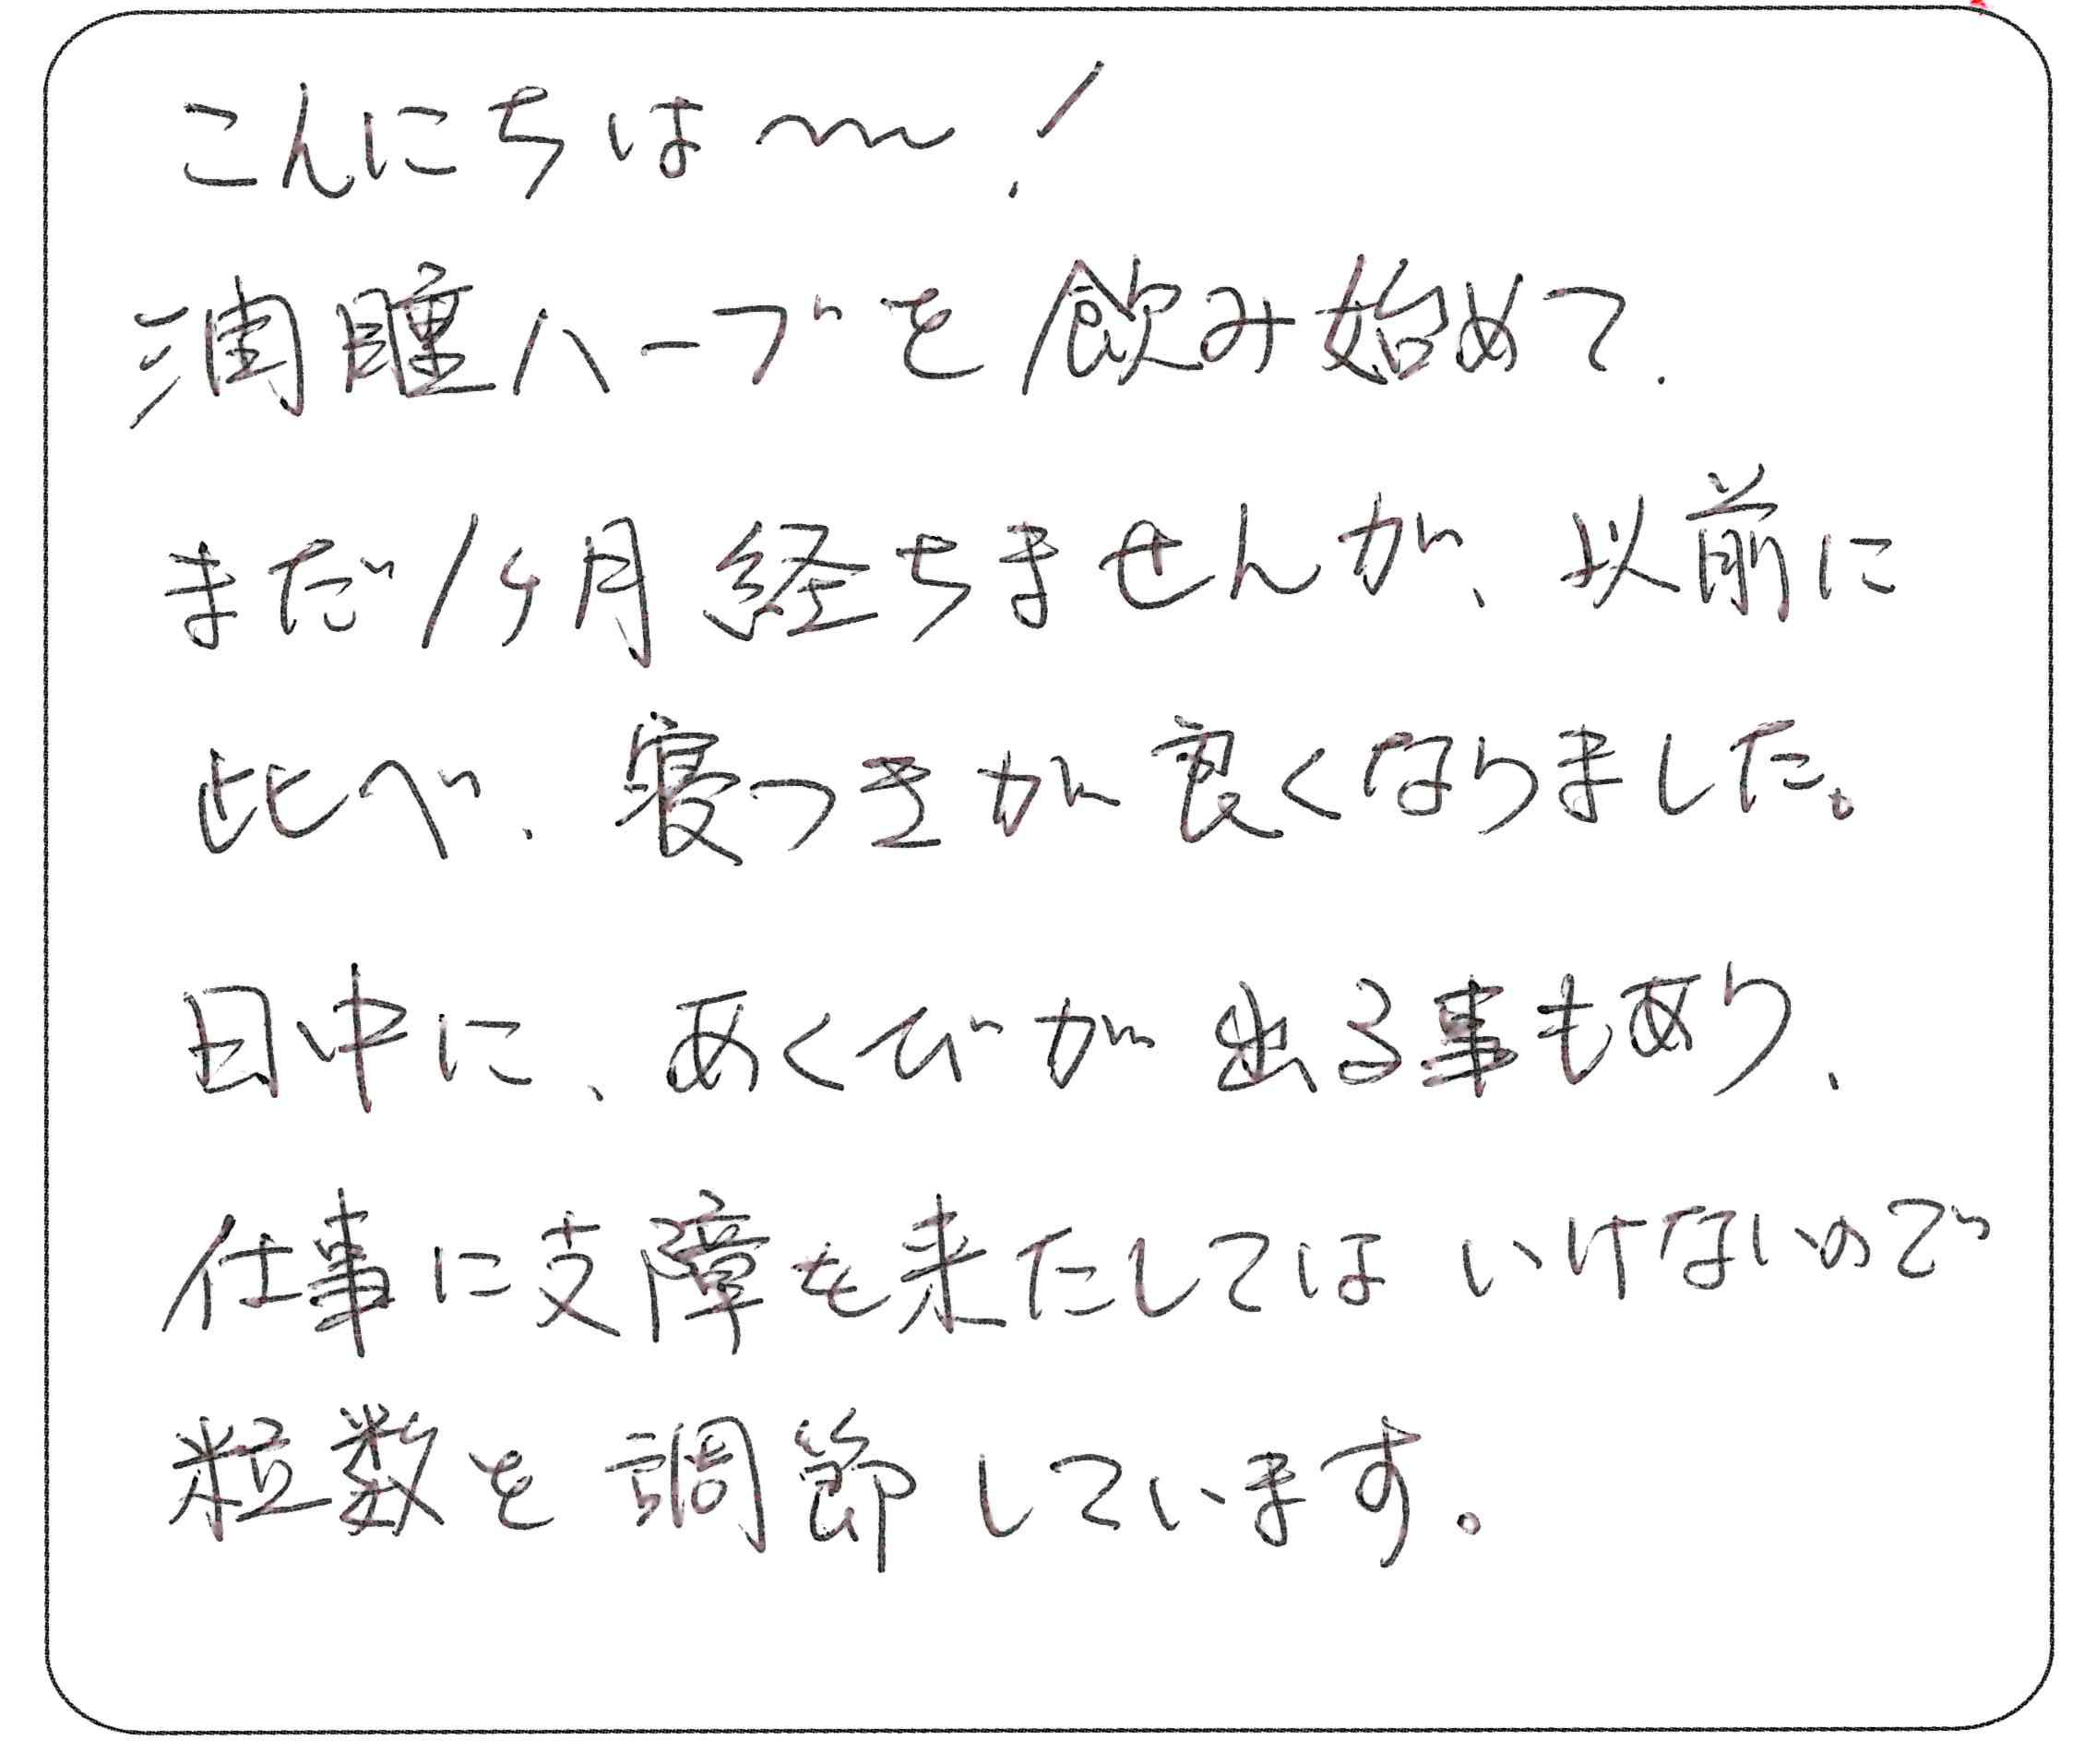 こんにちは〜!
潤睡ハーブを飲み始めて、
まだ1ヶ月経ちませんが、以前に
比べ、寝つきが良くなりました。
日中に、あくびが出る事もあり、
仕事に支障を来たしてはいけないので
粒数を調節しています。